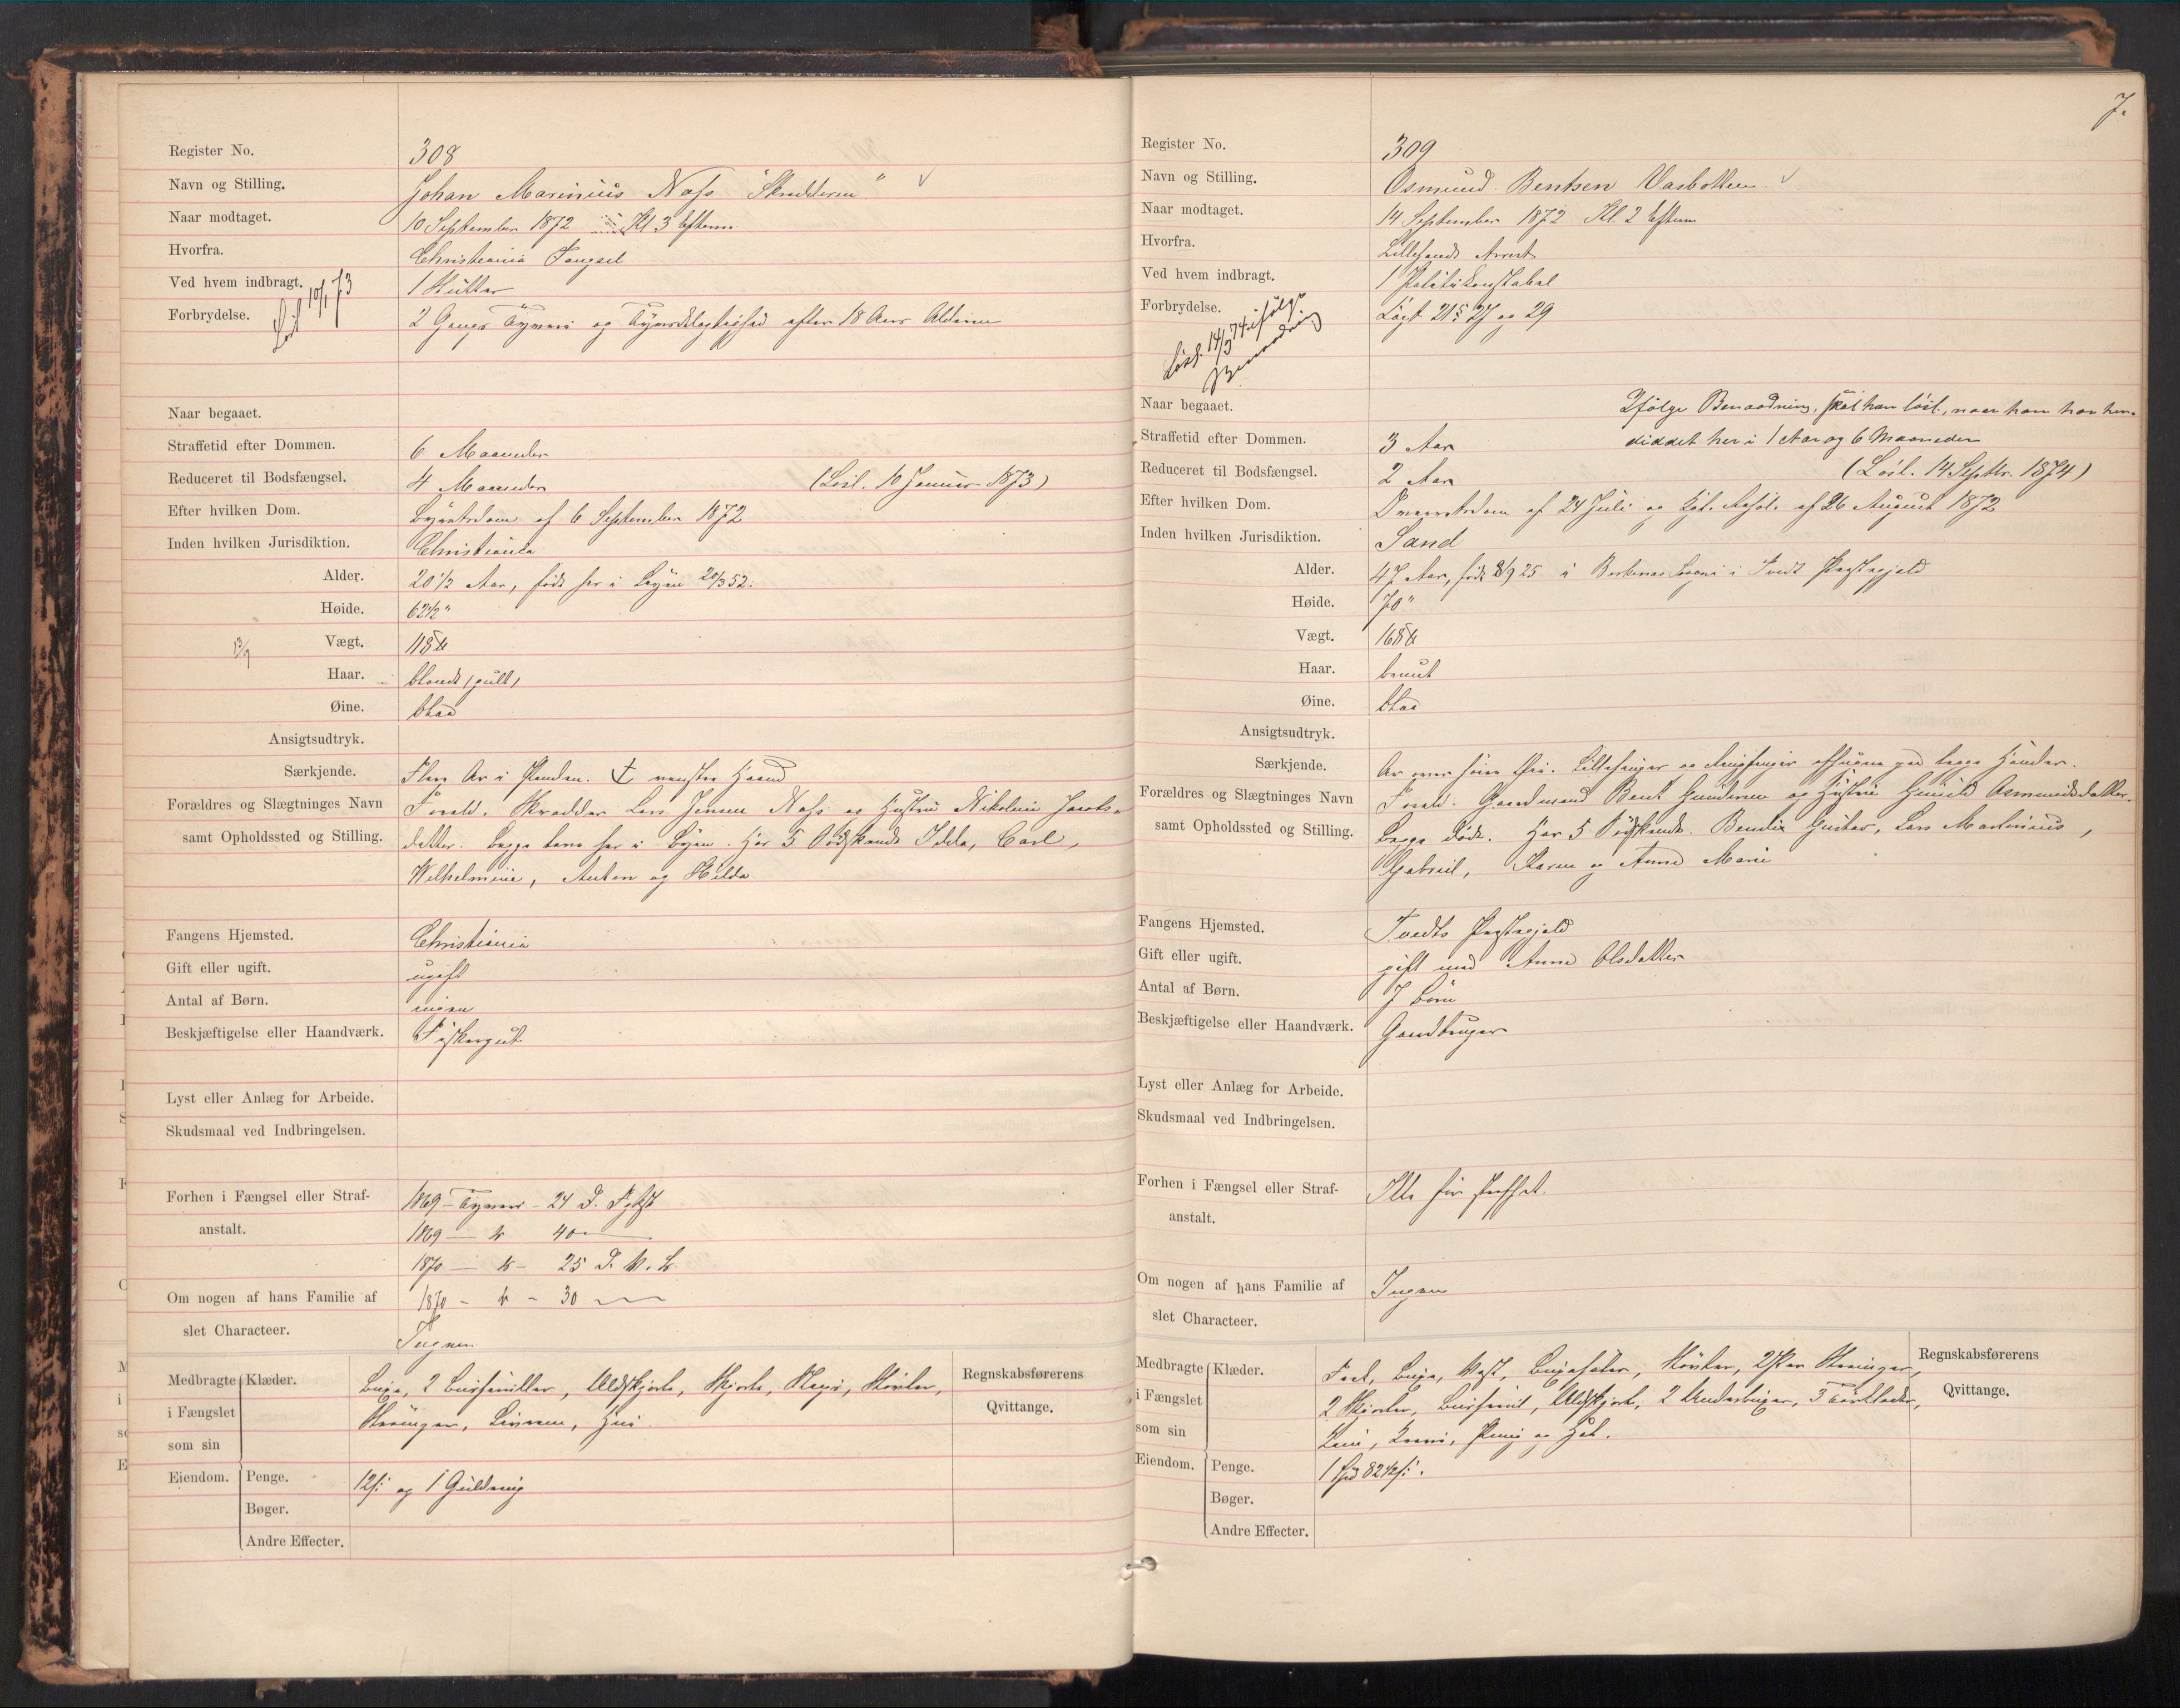 Register No. 308
Navn og Stilling. Johan Marinius Næss "Skrædderen"
Naar modtaget. 10 September 1872 Kl 3 Efterm
Hvorfra. Christiania Fængsel
Ved hvem indbragt. 1 Slutter
Løsl 10/1 73
Forbrydelse. 2 Gangs Tyveri og Tyvsdelagtighed efter 18 Aars Alderen
Naar begaaet.
Straffetid efter Dommen. 6 Maaneder
Reduceret til Bodsfængsel. 4 Maaneder (Løsl. 10 Januar 1873)
Efter hvilken Dom. Byretsdom af 6 September 1872
Inden hvilken Jurisdiktion. Christiania
Alder. 20 1/2 Aar, født her i Byen 20/3 52.
Høide. 62 1/2"
13/9 Vægt. 118 ℔
Haar. blondt (gult)
Øine. blaa
Ansigtsudtryk.
Særkjende. Flere Ar i Panden. ⚓ venstre Haand
Forældres og Slægtninges Navn Foræld. Skrædder Lars Jensen Næss og Hustru Nikoline Jacobs-
samt Opholdssted og Stilling. datter. begge leve her i Byen. Har 5 Sødskende Idda, Carl,
Wilhelmine, Anton og Hilda
Fangens Hjemsted. Christiania
Gift eller ugift. ugift
Antal af Børn. ingen
Beskjæftigelse eller Haandværk. Fiskergut
Lyst eller Anlæg for Arbeide.
Skudsmaal ved Indbringelsen.
Forhen i Fængsel eller Straf- 1869 – Tyveri – 24 D. Fgkst
anstalt. 1869 — do 40 —
1870 — do – 25 D. V. B.
Om nogen af hans Familie af 1870 – do – 30 —
slet Characteer. Ingen
Medbragte Klæder. Buxe, 2 Busseruller, Uldskjorte, Skjorte, Støvler,
i Fængslet Strømper, Hue
som sin
Regnskabsførerens
Qvittange.
Eiendom. Penge. 12 ß og 1 Guldring
Bøger.
Andre Effecter.
7.
Register No. 309
Navn og Stilling. Osmund Bentsen Vasbotten
Naar modtaget. 14 September 1872 Kl. 2 Efterm
Hvorfra. Lillesands Arrest
Ved hvem indbragt. 1 Politikonstabel
Forbrydelse. Løgt 21 § 27 og 29
Løsl. 14/3 74 ifølge
Benaadning
Naar begaaet. Ifølge Benaadning, skal han løsl., naar han har hen-
Straffetid efter Dommen. 3 Aar siddet her i 1 Aar og 6 Maaneder
Reduceret til Bodsfængsel. 2 Aar (Løsl. 14 Septbr. 1874)
Efter hvilken Dom. Overretsdom af 24 Juli og Kgl. Resol. af 26 August 1872
Inden hvilken Jurisdiktion. Sand
Alder. 47 Aar, født 8/9 25 i Birkenes Sogn i Tvedt Præstegjeld
Høide. 70"
Vægt. 168 ℔
Haar. brunt
Øine. blaa
Ansigtsudtryk.
Særkjende. Ar over høire Øie. Lillefinger og Ringfinger paa begge Hænder.
Forældres og Slægtninges Navn Foræld. Gaardmand Bent Gundersen og Hustru Gunild Asmundsdatter.
samt Opholdssted og Stilling. begge døde. Har 5 Sødskende. Bendix Gustav, Lars Martinius,
Gabriel, Karen og Anne Marie
Fangens Hjemsted. Tvedts Præstegjeld
Gift eller ugift. gift med Anne Olsdatter
Antal af Børn. 7 Børn
Beskjæftigelse eller Haandværk. Gaardbruger
Lyst eller Anlæg for Arbeide.
Skudsmaal ved Indbringelsen.
Forhen i Fængsel eller Straf- Ikke før straffet.
anstalt.
Om nogen af hans Familie af Ingen
slet Characteer.
Medbragte Klæder. Buxe, Vest, Buxeseler, Støvler, 2 Par Strømper,
i Fængslet 2 Skjorter, Uldskjorte, 2 Underbuxer, 3 Tørklæder,
som sin Kam, og Hat.
Regnskabsførerens
Qvittange.
Eiendom. Penge. 1 Spd 82 1/2 ß.
Bøger.
Andre Effecter.